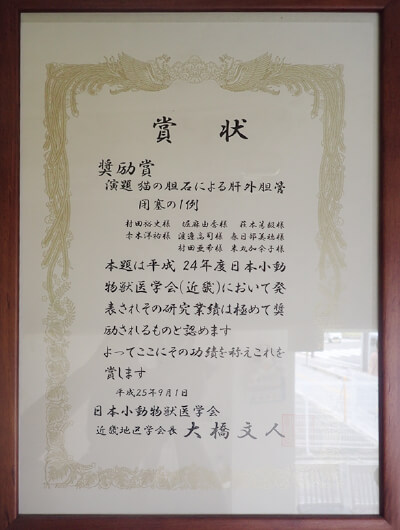 賞 状
奨励賞
演題 猫の胆石による肝外胆管
閉塞の1例
村田裕史様 堀麻由香様 萩本篤毅様
寺本洋裕様 渡邊高司様 春日部美穂様
村田亜希様 東久加奈子様
本題は平成24年度日本小動
物獣医学会(近畿)において発
表されその研究業績は極めて奨
励されるものと認めます
よってここにその功績を称えこれを
賞します
平成25年9月1日
日本小動物獣医学会
近畿地区学会長 大橋文人